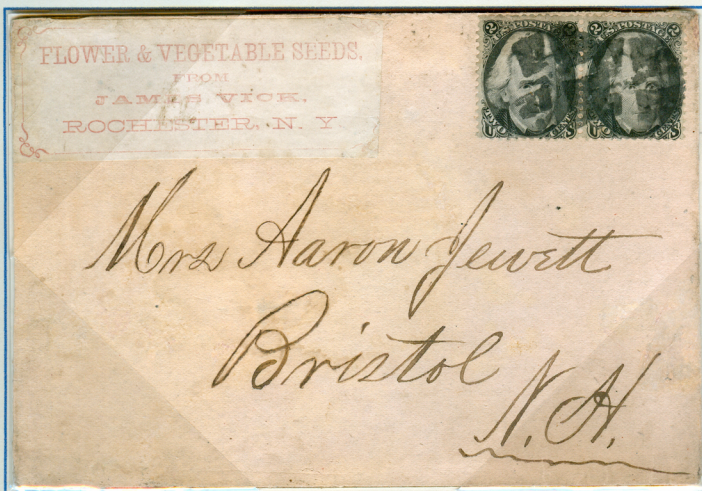 FLOWER & VEGETABLE SEEDS,
FROM
JAMES VICK,
ROCHESTER, N. Y
2 U.S. POSTAGE 2
Mrs Aaron Jewett
Bristol
N. H.